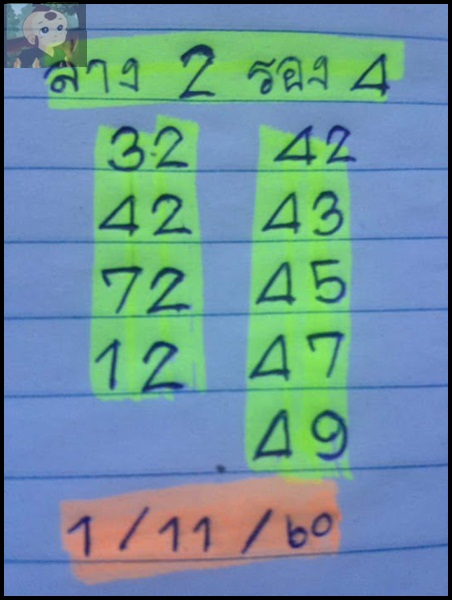 ล่าง 2 รอง 4
32 42
42 43
72 45
12 47
49
1/11/60